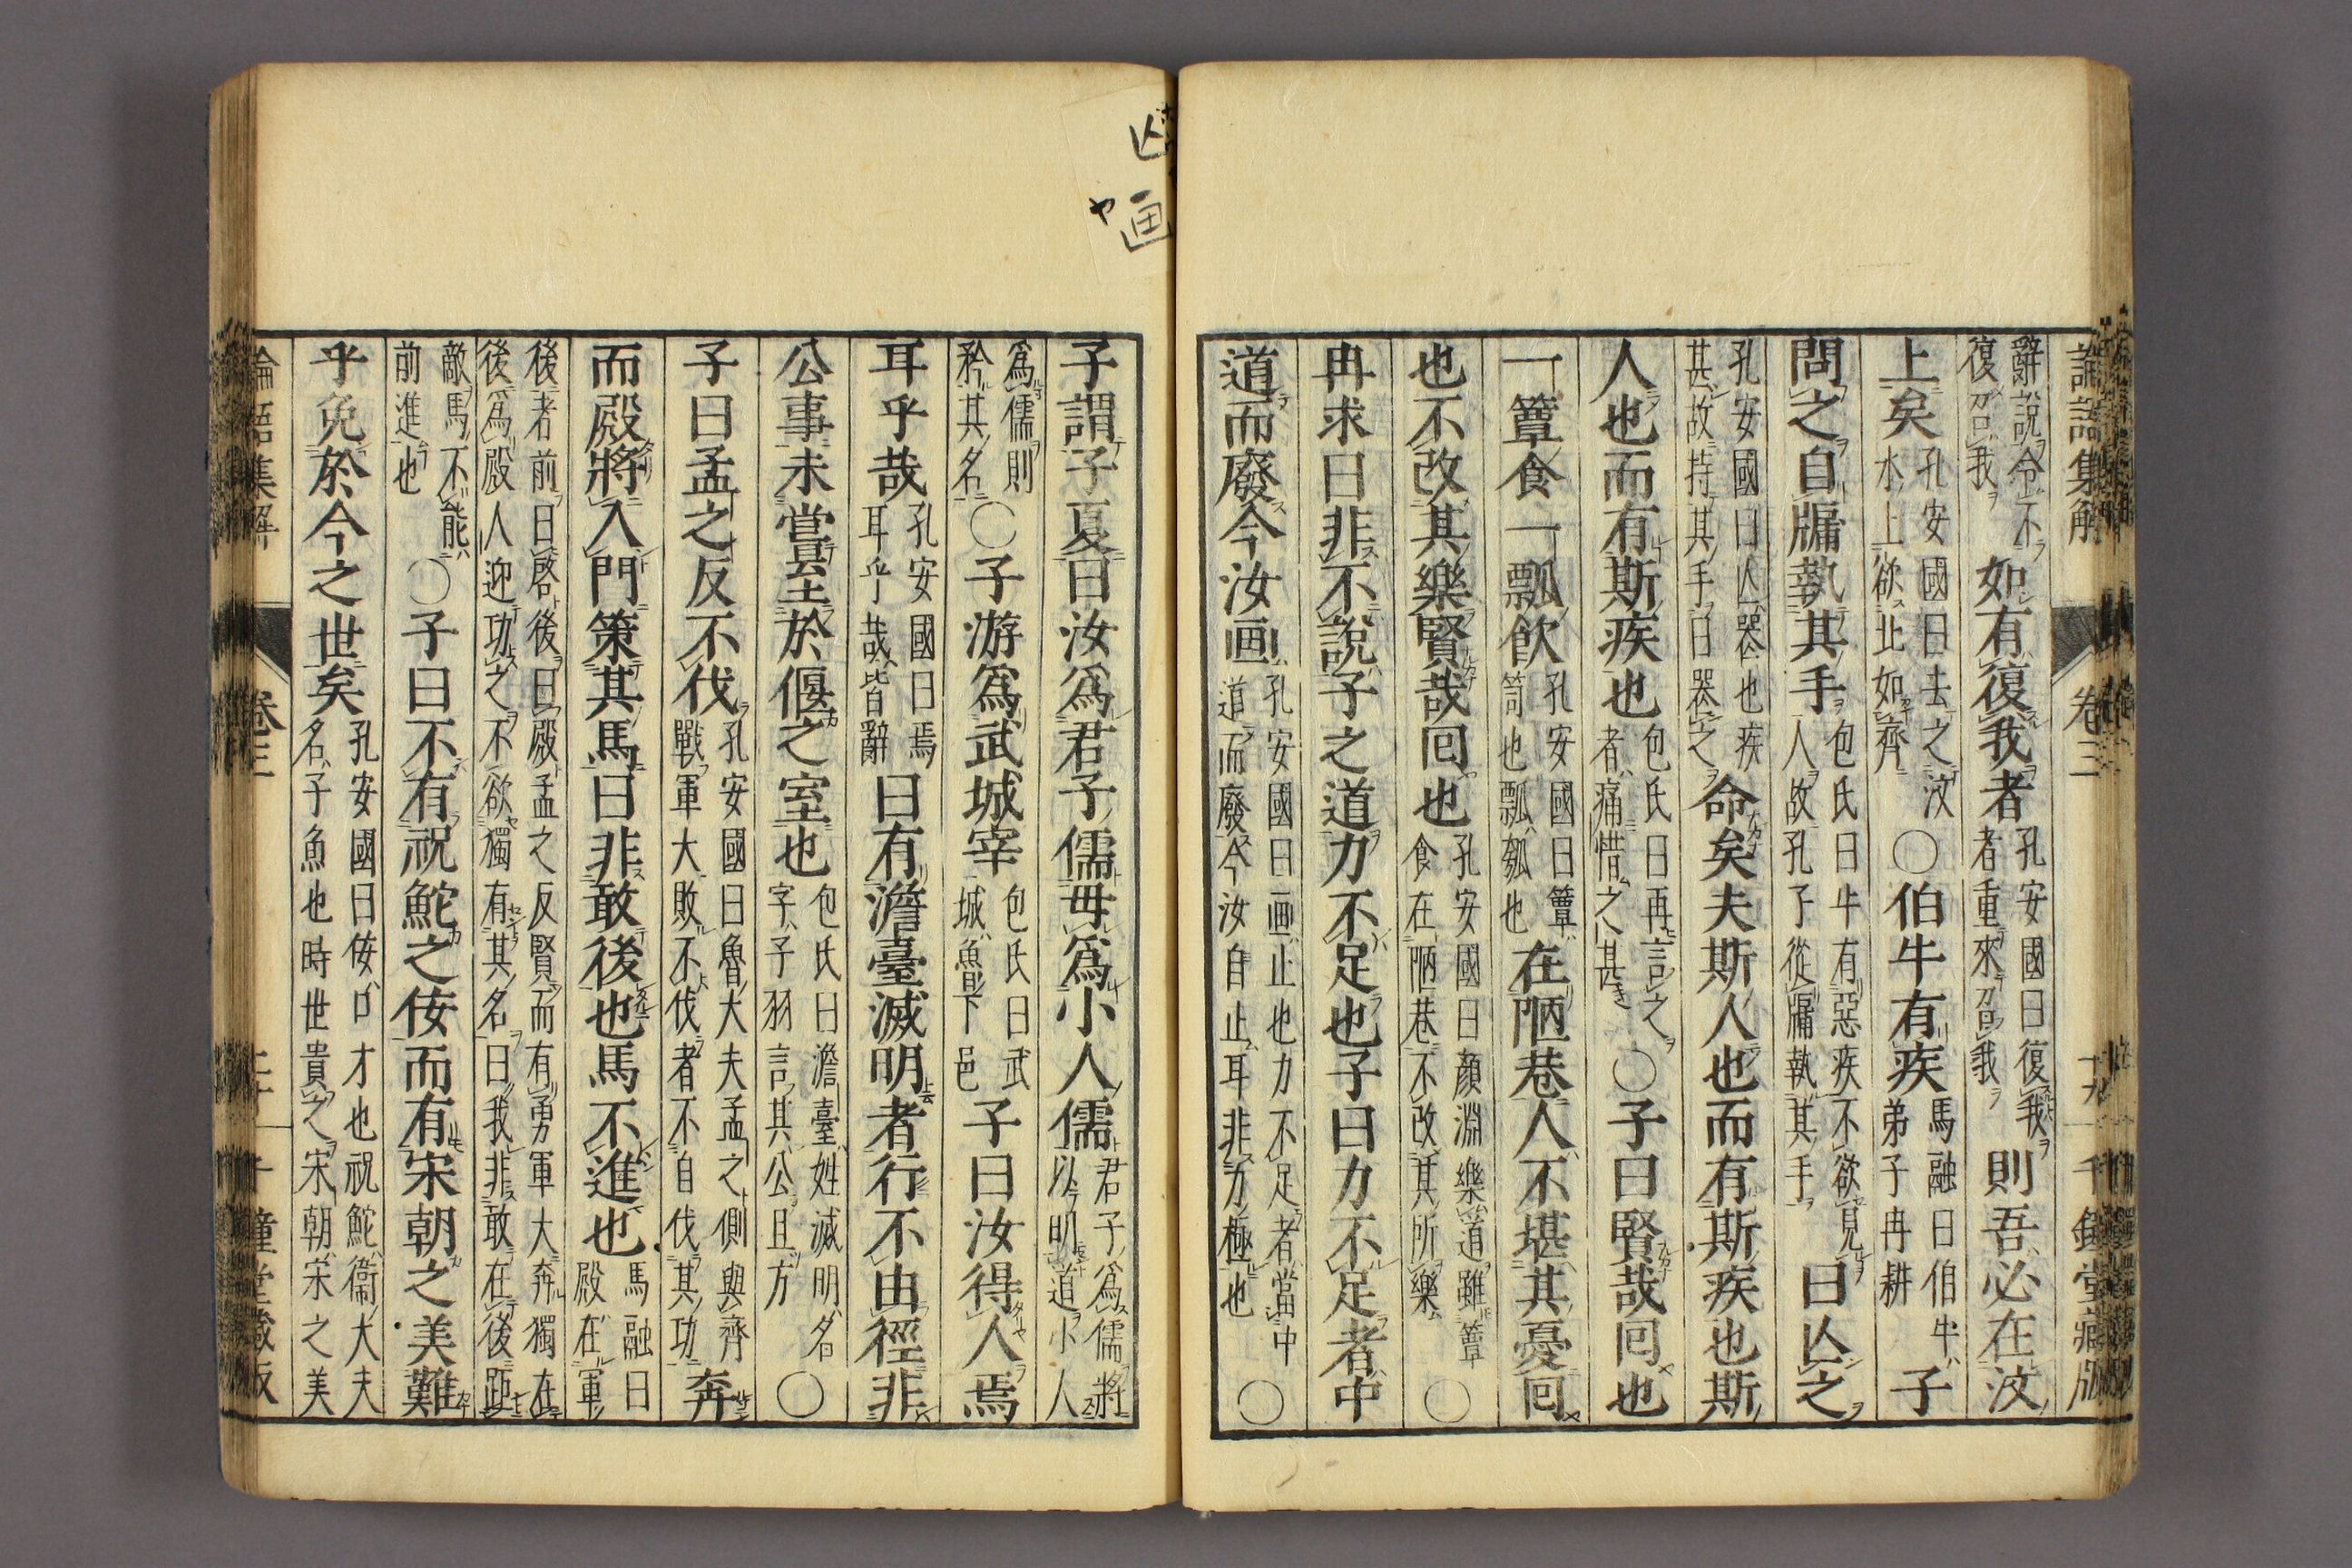 論語集解 卷三 十九 千鍾堂藏版
辭說令不復召我如有復我者孔安國曰復我者重來召我則吾必在汶
上矣孔安國曰去之汶水上欲北如齊○伯牛有疾馬融曰伯牛弟子冉耕子
問之自牖執其手包氏曰牛有惡疾不欲見人故孔子從牖執其手曰亾之
孔安國曰亾喪也疾甚故持其手曰喪之命矣夫斯人也而有斯疾也斯
人也而有斯疾也包氏曰再言之者痛惜之甚○子曰賢哉回也
一簞食一瓢飮孔安國曰簞笥也瓢瓠也在陋巷人不堪其憂回
也不改其樂賢哉回也孔安國曰顏淵樂道雖簞食在陋巷不改其所樂○
冉求曰非不說子之道力不足也子曰力不足者中
道而廢今汝画孔安國曰画止也力不足者當中道而廢今汝自止耳非力極也○
亾
画ヤ
子謂子夏曰汝爲君子儒毋爲小人儒君子爲儒將以明道小人
爲儒則矜其名○子游爲武城宰包氏曰武城魯下邑子曰汝得人焉
耳乎哉孔安國曰焉耳乎哉皆辭曰有澹臺滅明者行不由徑非
公事未嘗至於偃之室也包氏曰澹臺姓滅明名字子羽言其公且方○
子曰孟之反不伐孔安國曰魯大夫孟之側與齊戰軍大敗不伐者不自伐其功奔
而殿將入門策其馬曰非敢後也馬不進也馬融曰殿在軍
後者前曰啓後曰殿孟之反賢而有勇軍大奔獨在後爲殿人迎功之不欲獨有其名曰我非敢在後距
敵馬不能前進也○子曰不有祝鮀之佞而有宋朝之美難
乎免於今之世矣孔安國曰佞口才也祝鮀衞大夫名子魚也時世貴之宋朝宋之美
論語集解 卷三 二十 千鍾堂藏版